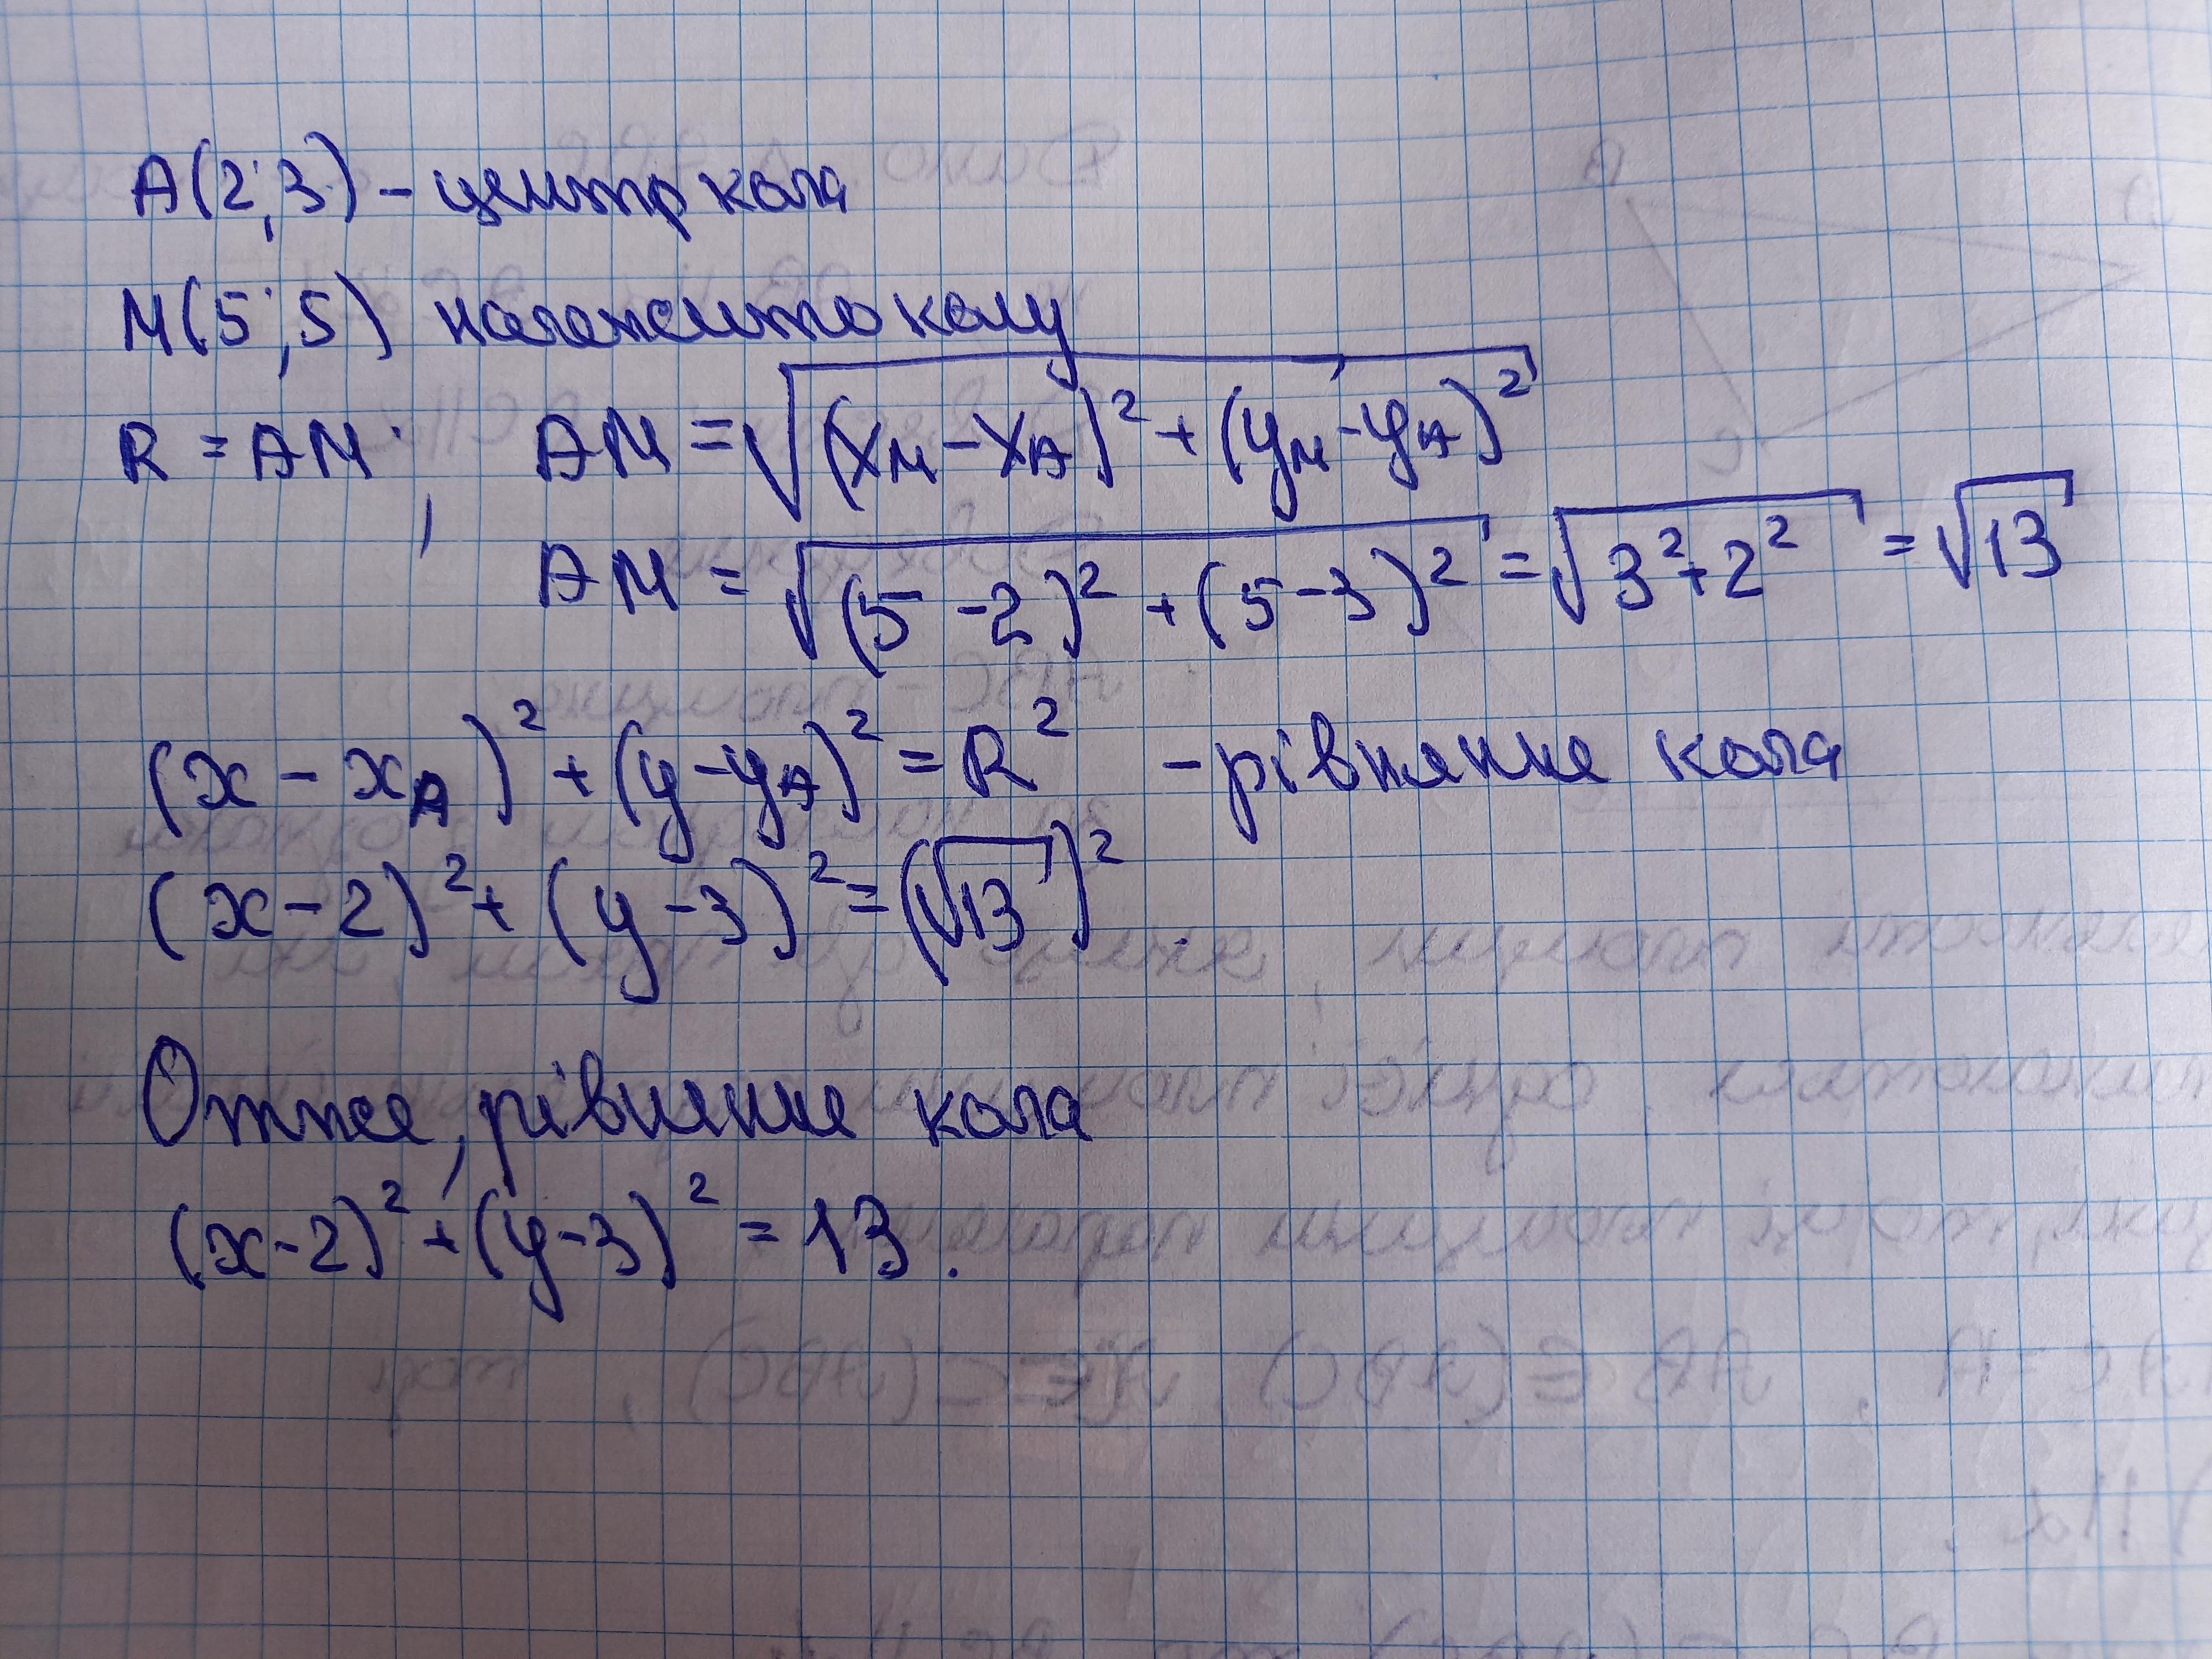 A(2;3) – центр кола
M(5;5) належить колу
R = AM; AM = √((x_M – x_A)² + (y_M – y_A)²)
AM = √((5 – 2)² + (5 – 3)²) = √(3² + 2²) = √13
(x – x_A)² + (y – y_A)² = R² – рівняння кола
(x – 2)² + (y – 3)² = (√13)².
Отже, рівняння кола
(x – 2)² + (y – 3)² = 13.